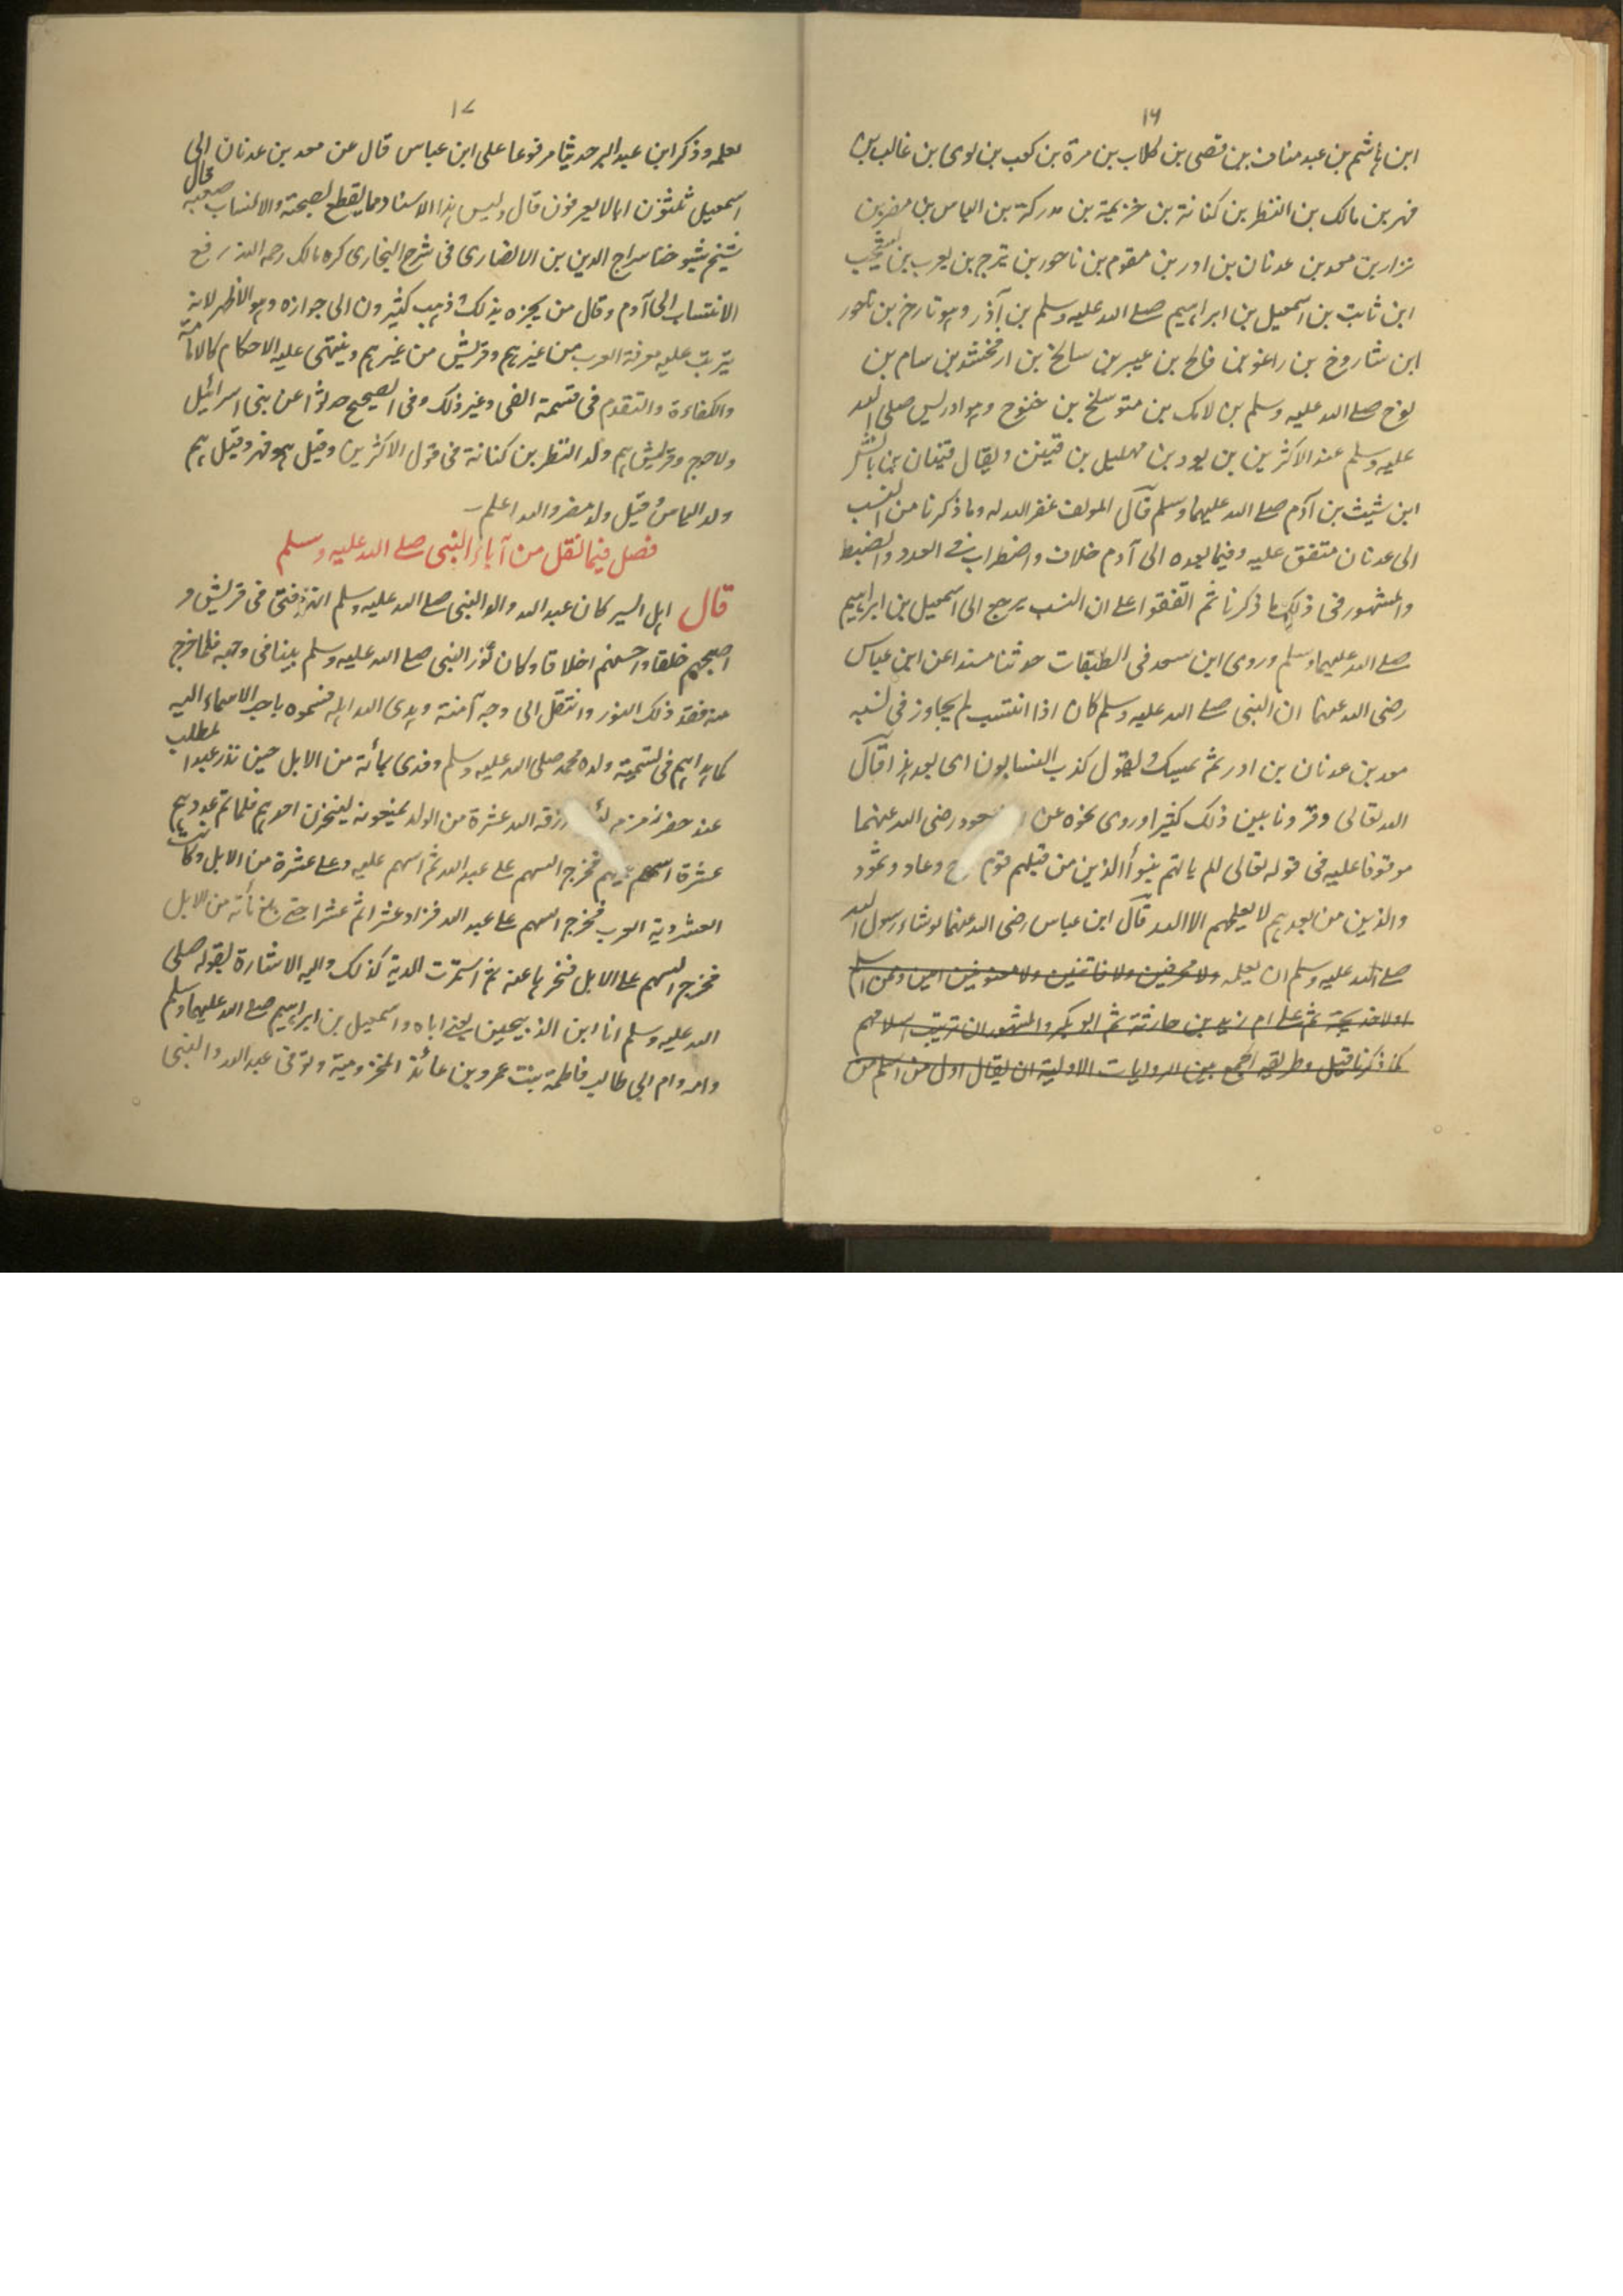 ١٦
ابن هاشم بن عبد مناف بن قصى بن كلاب بن مرة بن كعب بن لوى بن غالب بن
فهر بن مالك بن النظر بن كنانة بن خزيمة بن مدركة بن الياس بن مضر بن
نزار بن معد بن عدنان بن ادر بن مقوم بن ناحور بن تيرح بن يعرب بن يشجب
ابن ثابت بن اسمعيل بن ابراهيم صلے الله عليه وسلم بن آذر وهو تارخ بن ناحور
ابن شاروخ بن راغو بن فالخ بن عيبر بن سالخ بن ارفخشد بن سام بن
نوح صلے الله عليه وسلم بن لامك بن متوسلخ بن خنوخ وهو ادريس صلى الله
عليه وسلم عند الاكثرين بن يود بن مهليل بن قينن ويقال قينان بن يانش
ابن شيث بن آدم صلے الله عليهما وسلم قال المولف غفر الله له وما ذكرنا من النسب
الى عدنان متفق عليه وفيما بعده الى آدم خلاف واضطراب فے العدد والضبط
والمشهور فى ذلك ما ذكرنا ثم اتفقوا علے ان النسب يرجع الى اسمعيل بن ابراهيم
صلے الله عليهما وسلم وروى ابن سعد فى الطبقات حدثنا مسندا عن ابن عباس
رضى الله عنهما ان النبى صلے الله عليه وسلم كان اذا انتسب لم يجاوز فى نسبه
معد بن عدنان بن ادر ثم يمسك ويقول كذب النسابون اى بعد هذا قال
الله تعالى وقرونا بين ذلك كثيرا وروى نحوه عن رضى الله عنهما
موقوفا عليه فى قوله تعالى الم ياتهم نبوأ الذين من قبلهم قوم وعاد وثمود
والذين من بعدهم لا يعلمهم الا الله قال ابن عباس رضى الله عنهما لو شاء رسول الله
صلے الله عليه وسلم ان يعلمه ولا محرفين ولا فاتنين ولا مفتونين امين ومن اسلم
اولا خديجة ثم علے ام زيد بن حارثة ثم ابو بكر والمشهور ان ترتيب اسلامهم
كما ذكرنا قيل وطريقه الجمع بين الروايات الاولية ان يقال اول من اسلم من
١٧
لعلمه وذكر ابن عبد البر حديثا مرفوعا على ابن عباس قال عن معد بن عدنان الى
اسمعيل ثلثون ابا لا يعرفون قال وليس هذا الاسناد مما يقطع بصحته والانساب صعبة قال
شيخ شيوخنا سراج الدين بن الانصارى فى شرح البخارى كره مالك رحمه الله رفع
الانتساب الى آدم وقال من يخبره بذلك وذهب كثيرون الى جوازه وهو الاظهر لانه
يترتب عليه معرفة العرب من غيرهم وقريش من غيرهم وينتهى عليه الاحكام كالامامة
والكفاءة والتقدم فى قسمة الفى وغير ذلك وفى الصحيح حدثوا عن بنى اسرائيل
ولا حرج وقريش هم ولد النظر بن كنانة فى قول الاكثرين وقيل هو فهر وقيل هم
ولد الياس وقيل ولد مضر والله اعلم
فصل فيما نقل من آباء النبى صلے الله عليه وسلم
قال اهل السير كان عبد الله والد النبى صلے الله عليه وسلم انهز فتى فى قريش و
اصبحهم خلقا واحسنهم اخلاقا وكان نور النبى صلے الله عليه وسلم بينا فى وجهه فلما خرج
منه فقد ذلك النور وانتقل الى وجه آمنة وهدى الله اهله فسموه باحب الاسماء اليه
كما هداهم فى تسمية ولده محمد صلى الله عليه وسلم وفدى بمائة من الابل حين نذر عبد المطلب
عند حفر زمزم لئن رزقه الله عشرة من الولد يمنعونه لينحرن احدهم فلما تم عددهم
عشرة اسهم عليهم فخرج السهم علے عبد الله ثم اسهم عليه وعلے عشرة من الابل وكانت
العشر دية العرب فخرج السهم علے عبد الله فزاد عشرا ثم عشرا حتے بلغ مائة من الابل
فخرج السهم علے الابل فنحرها عنه ثم استمرت الدية كذلك واليه الاشارة بقوله صلى
الله عليه وسلم انا ابن الذبيحين يعنے اباه واسمعيل بن ابراهيم صلے الله عليهما وسلم
وامه وام ابى طالب فاطمة بنت عمرو بن عائذ المخزومية وتوفى عبد الله والنبى